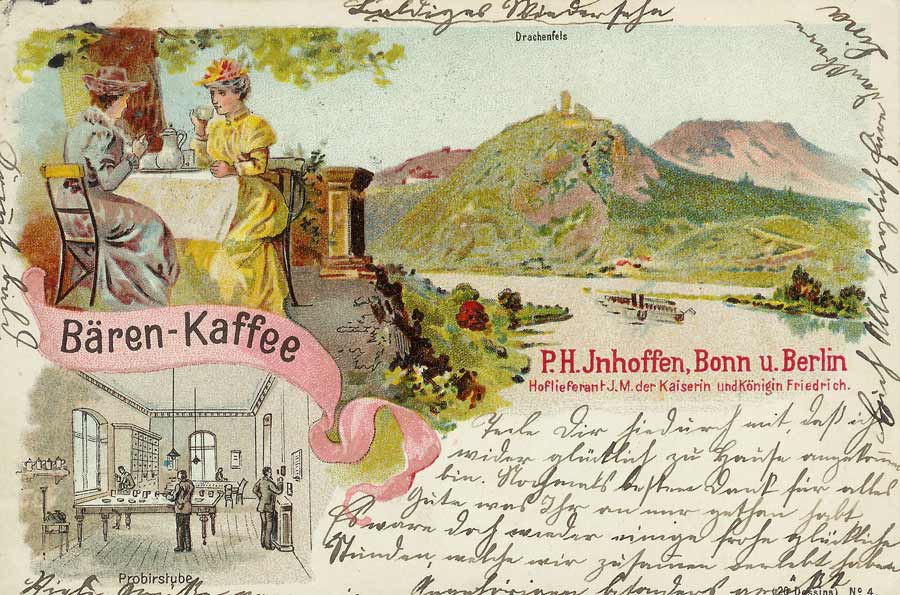 Baldiges Wiedersehn
Drachenfels
Bären-Kaffee
P.H. Jnhoffen, Bonn u. Berlin
Hoflieferant J.M. der Kaiserin und Königin Friedrich.
Teile Dir hiedurch mit, daß ich
wider glücklich zu Hause angekomm
bin. Nochmals besten Dank für alles
Gute was Ihr an mir gethan habt
Es ware doch wieder einige frohe glückliche
Stunden, welche wir zusammen verlebt haben
Viele besonders
Probirstube
(20 Dessins) No 4.